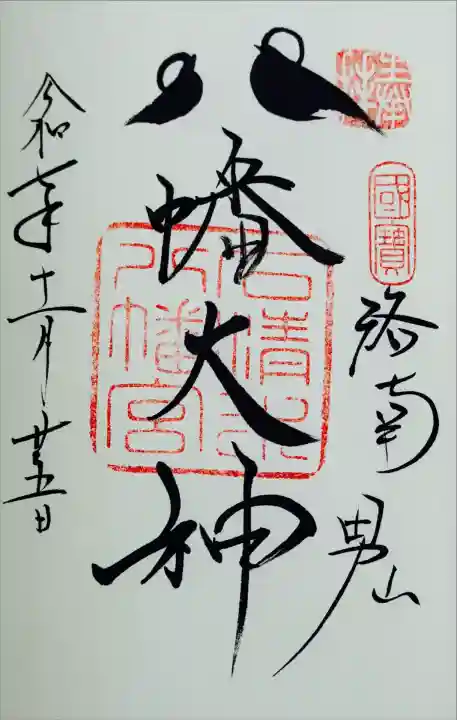 國寶
洛南 男山
八幡大神
石清水
八幡宮
令和 年十一月廿五日